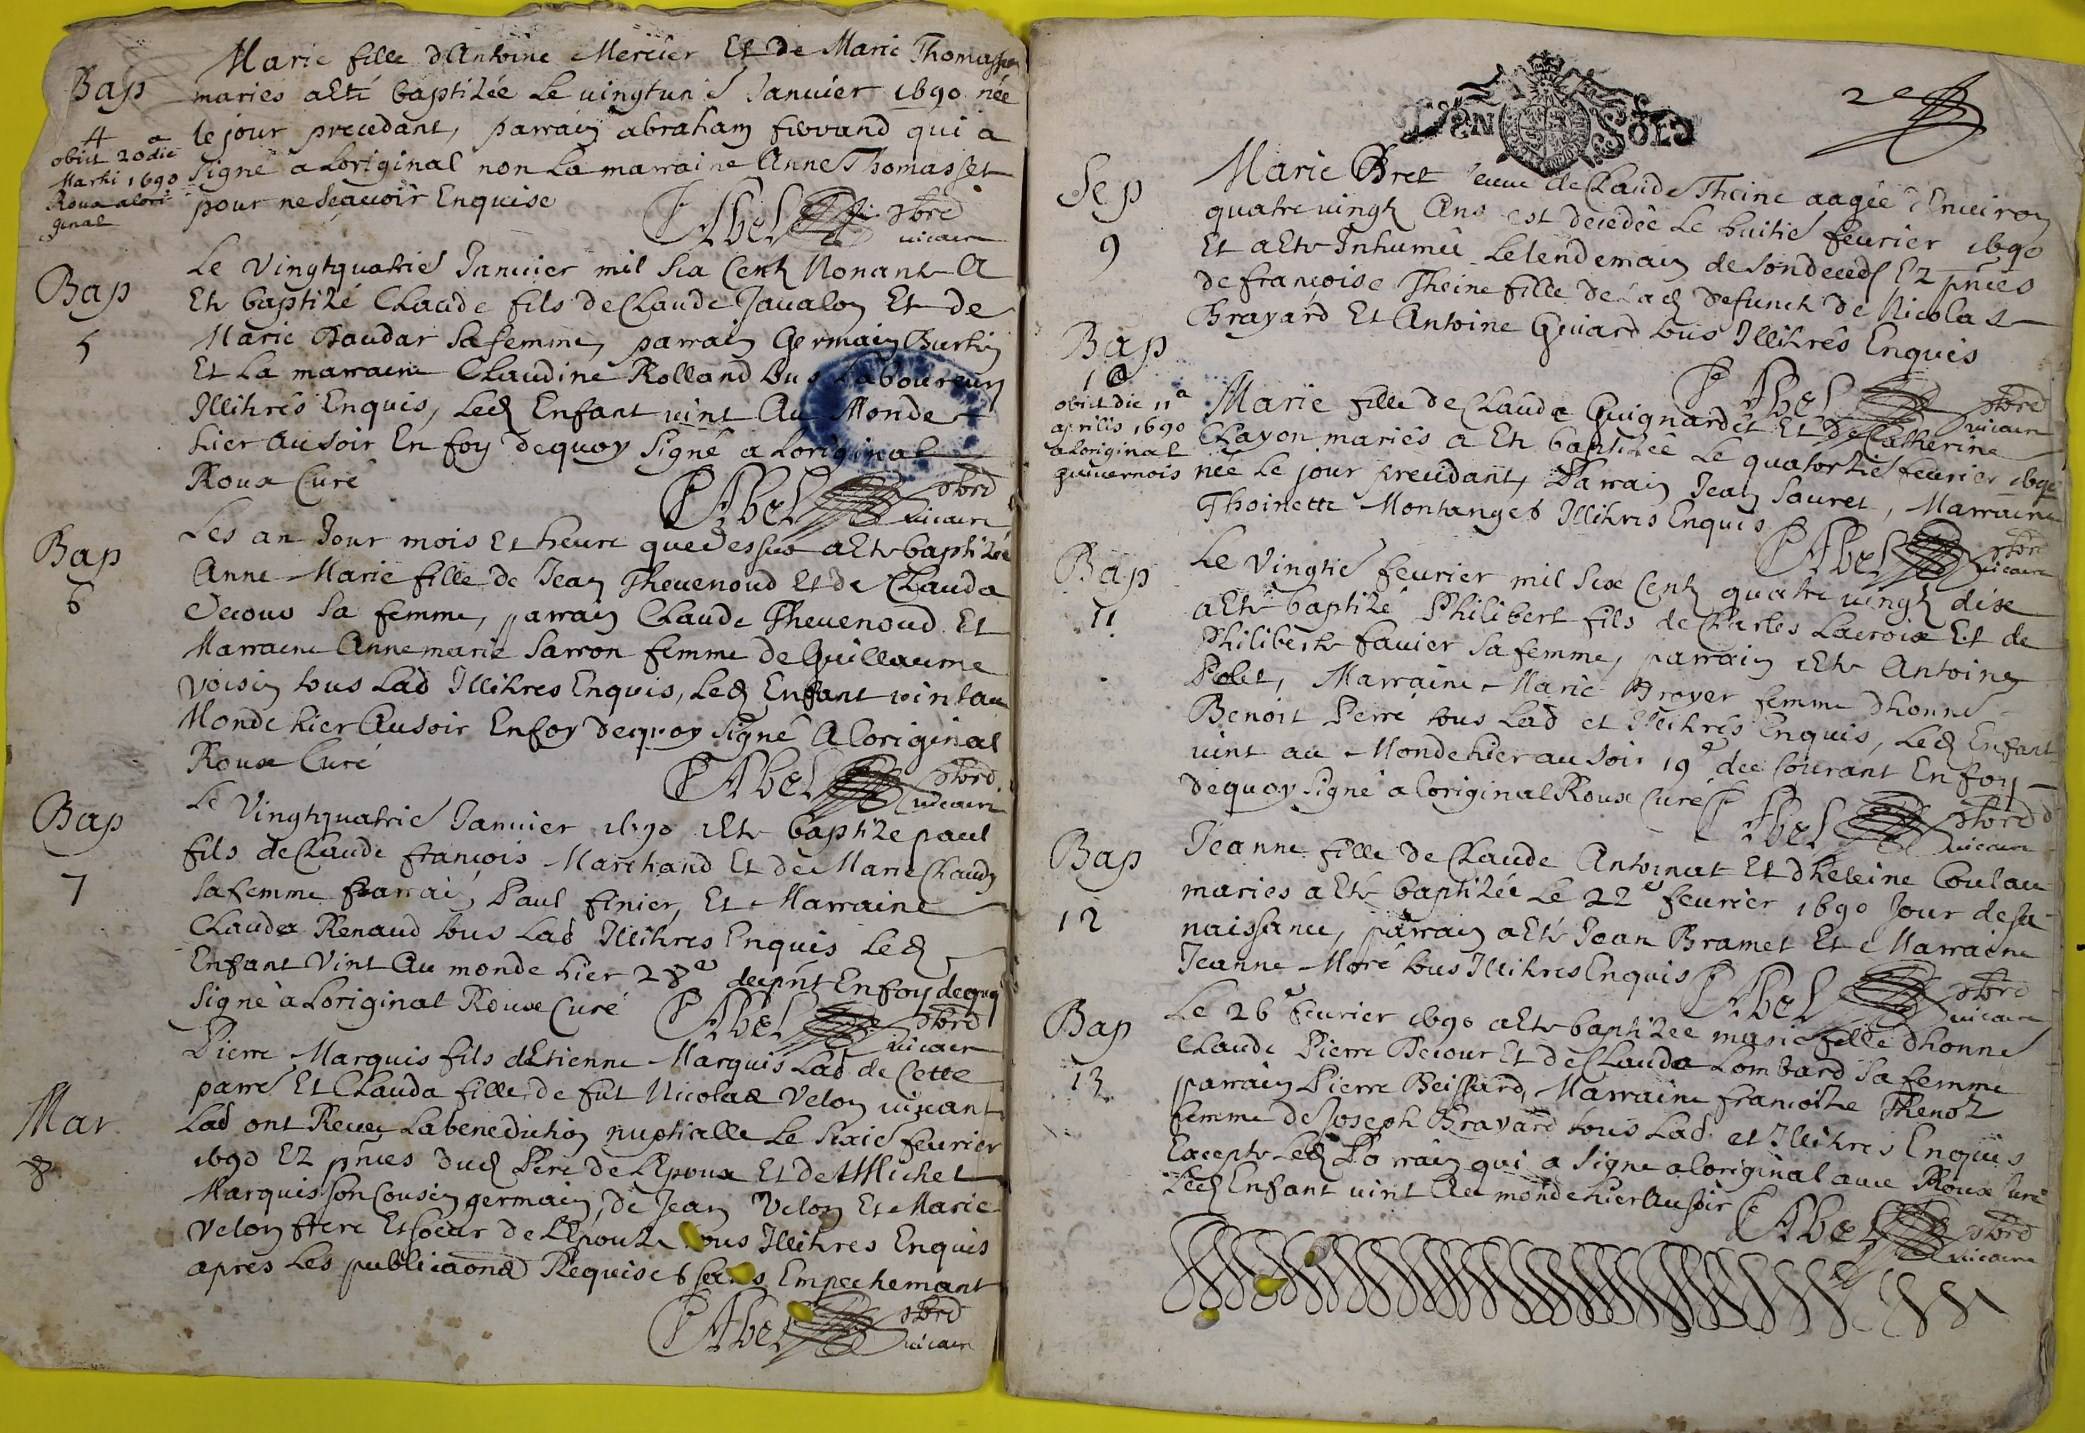 Bap
4
obiit 20a die
Martii 1690
Roux alori
ginal
Marie fille dAntoine Mercier Et de Marie Thomasson
maries a Eté baptizée Le vingtunie Januier 1690 née
le jour precedant, parrain abraham qui a
signé a Loriginal non La marraine Anne Thomasset
pour ne scauoir Enquise
Abel pbre
uicaire
Bap
5
Le Vingtquatrie Januier mil six Cent Nonante A
Ete baptizé Claude fils de Claude Jaualon Et de
Marie Daudar sa femme, parrain Germain Burtin
Et La marraine Claudine Rolland tous Laboureurs
Illitirés Enquis, Led Enfant vint Au Monde
hier au soir En foy dequoy signé a Loriginal
Roux Curé
Abel pbre
uicaire
Bap
6
Les an Jour mois Et heure que dessus a Ete baptizée
Anne Marie fille de Jean Theuenoud Et de Clauda
sa femme, parrain Claude Theuenoud Et
Marraine Annemarie Sarron femme de Guillaume
Voisin tous Lad Illitires Enquis, Led Enfant vint au
Monde hier Au soir En foy dequoy signé A Loriginal
Roux Curé
Abel pbre
uicaire
Bap
7
Le Vingtquatrie Januier 1690 a Ete baptize paul
fils de Claude françois Marchand Et de Marie
sa femme parrain Paul finier, Et Marraine
Clauda Renaud tous Lad Illitires Enquis Led
Enfant Vint Au monde hier 28e du pnt En foy dequoy
signé a Loriginal Roux Curé
Abel pbre
uicaire
Mar
8
Pierre Marquis fils dEtienne Marquis Lad de Cette
parre Et Clauda fille de fut Nicolas Velon viuant
Lad ont Receu La benediction nuptialle Le sixie feurier
1690 Ez pnces dud Pere de LEpoux Et de Michel
Marquis son Cousin germain, de Jean Velon Et Marie
Velon frere Et soeur de LEpouze tous Illitires Enquis
apres Les publicaons Requises sans Empechemant
Abel pbre
uicaire
2e
Sep
9
Marie Bret veuue de Claude Theine aagée denuiron
quatreuingt Ans est decedée Le huitie feurier 1690
Et a Ete Inhumée Le lendemain de son deceds Ez pnces
de françoise Theine fille de Lad defunct de Nicolas
Brayard Et Antoine Guiard tous Illitirés Enquis
Abel pbre
uicaire
Bap
10
obiit die 11a
aprilis 1690
a Loriginal
guiuernois
Marie fille de Claude Guignardet Et De Catherine
Clayon mariés a Ete baptizée Le quatorzie feurier 1690
née Le jour precedant, Parrain Jean Sauret, Marraine
Thoinette Montanges Illitirés Enquis
Abel pbre
uicaire
Bap
11
Le Vingtie feurier mil six Cent quatre vingt dix
a Ete baptizé Philibert fils de Charles Lacroix Et de
Philiberte fauier sa femme, parrain a Ete Antoine
Polet, Marraine Marie Broyer femme dhonne
Benoit Perre tous Lad et Illitirés Enquis, Led Enfant
vint au Monde hier au soir 19e du Courant En foy
dequoy signé a Loriginal Roux Curé
Abel pbre
uicaire
Bap
12
Jeanne fille de Claude Antoinat Et dheleine Coulau
maries a Eté baptizée Le 22e feurier 1690 Jour de sa
naissance, parrain a Eté Jean Bramet Et Marraine
Jeanne Moré tous Illitires Enquis
Abel pbre
uicaire
Bap
13
Le 26e feurier 1690 a Ete baptizée marie fille dhonne
Claude Pierre Decour Et de Clauda Lombard sa femme
parrain Pierre Beissard, Marraine francoize Thenoz
femme de Joseph Brayard tous Lad et Illitires Enquis
Excepte Led Parrain qui a signé a Loriginal auec Roux Curé
Led Enfant vint Au monde hier Au soir
Abel pbre
uicaire